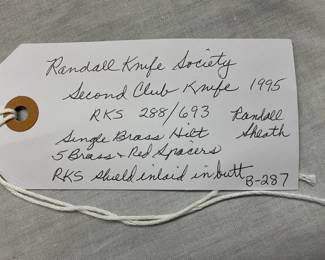 Randall Knife Society
Second Club Knife 1995
RKS 288/693 Randall
Single Brass Hilt Sheath
5 Brass + Red Spacers
RKS Shield inlaid in butt
B-287